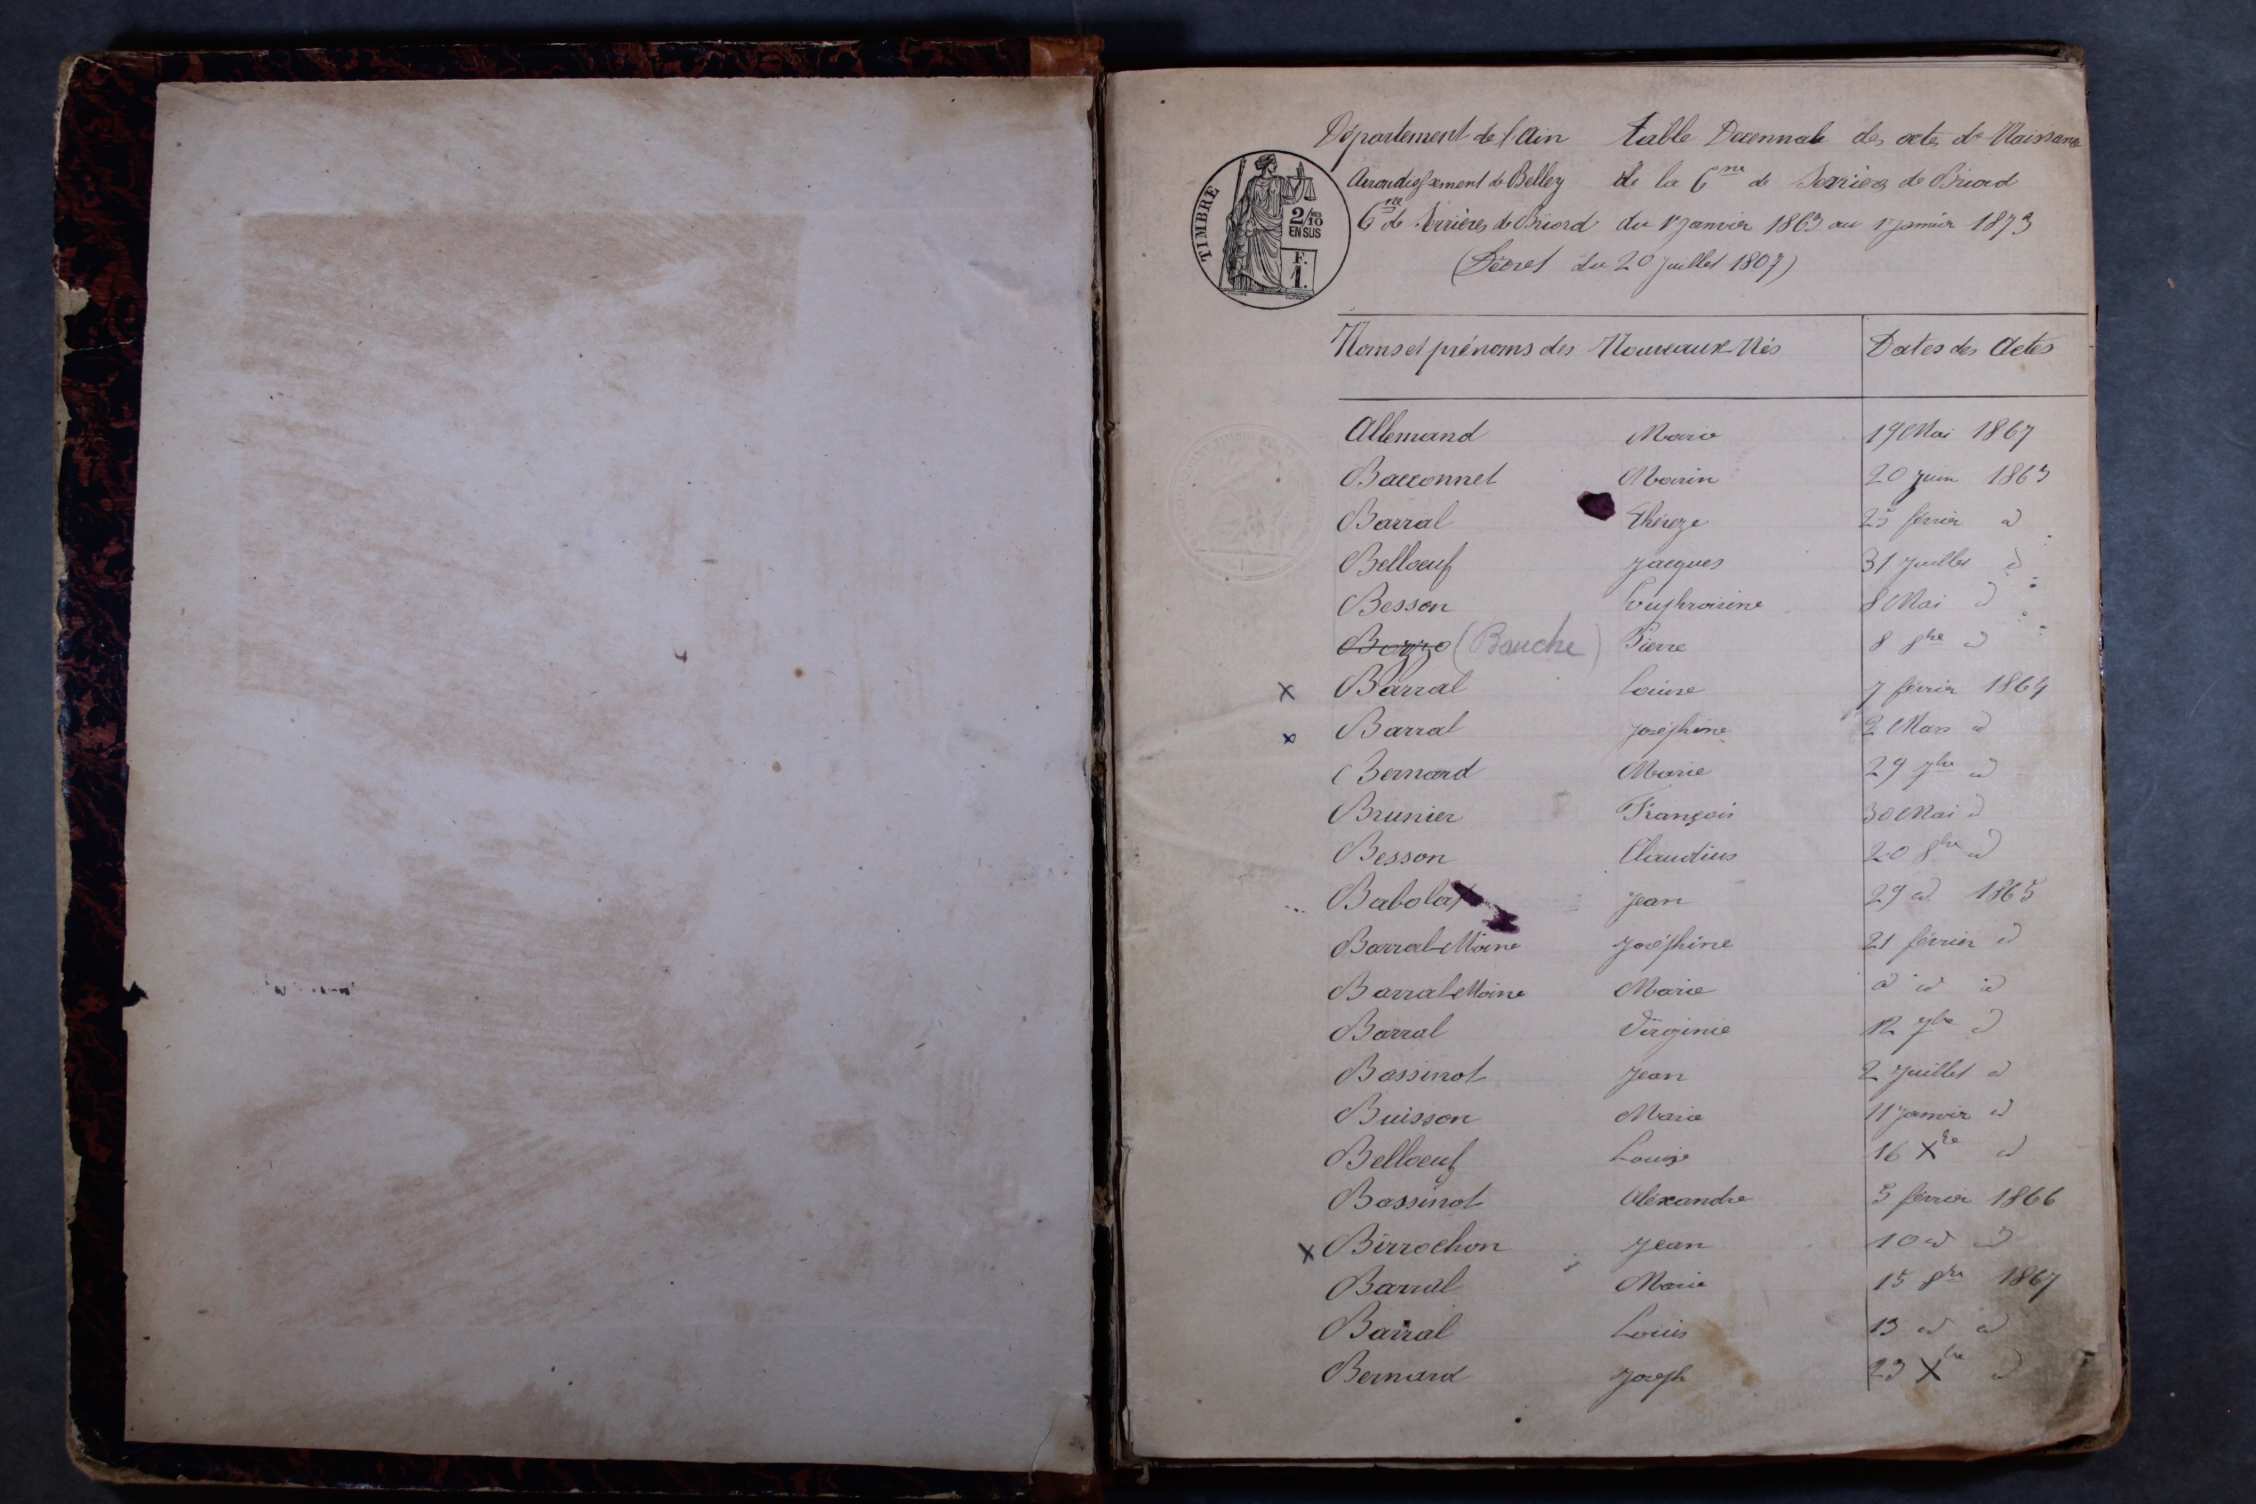 Département de l'Ain Table Decennale des actes de Naissance
Arrondissement de Belley de la Cne de Serrières de Briord
Cne de Serrières de Briord du 1er Janvier 1863 au 1er Janvier 1873
(Décret du 20 Juillet 1807)
TIMBRE
2/10 EN SUS
F. 1.
Noms et prénoms des Nouveaux-Nés Dates des Actes
Allemand Marie 19 Mai 1867
Bacconnet Marin 20 Juin 1863
Barral Thérèze 25 février d
Belloeuf Jacques 31 Juillet d
Besson Euphroisine 8 Mai d
Bozzo (Bouche) Pierre 8 8bre d
x Barral Louise 7 février 1864
x Barral Joséphine 2 Mars d
Bernard Marie 29 7bre d
Brunier François 30 Mai d
Besson Claudius 20 8bre d
Babolat Jean 29 d 1865
Barral-Moine Joséphine 21 février d
Barral-Moine Marie d d d
Barral Virginie 12 7bre d
Bassinot Jean 2 Juillet d
Buisson Marie 11 Janvier d
Belloeuf Louise 16 Xbre d
Bassinot Aléxandre 5 février 1866
x Birrochon Jean 10 d d
Barral Marie 15 8bre 1867
Barral Louis 13 d d
Bernard Joseph 23 Xbre d